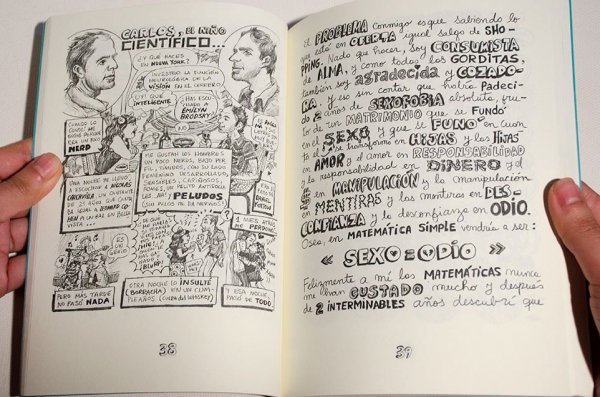 CARLOS, EL NIÑO
CIENTÍFICO...
¿Y QUÉ HACES EN
NUEVA YORK?
INVESTIGO LA FUNCIÓN
NEUROLÓGICA DE LA
VISIÓN EN EL CEREBRO
¡Y! QUÉ
INTELIGENTE
¿HAS ESCU-
CHADO A
EMILYN
BROBSKY?
NO
CUANDO LO
CONOCÍ ME
NERD
ME GUSTAN LOS HOMBRES
UN POCO NERDS, BAJO PER-
FIL, TÍMIDOS, CON SU LADO
FEMENINO DESARROLLADO,
SENSIBLES, CARIÑOSOS,
FLACOS, DE PELITO ANTIGRAVI-
PELUDOS
UNA NOCHE ME LLEVÓ
A ESCUCHAR A NICOLÁS
UN CHICO
DE 23 AÑOS QUE CANTA
EN LA
VISTA...
ES UN
GENIO
¡BUUU!
ME
PERDONÓ
PERO MÁS TARDE
NO PASÓ NADA
OTRA NOCHE LO INSULTÉ
(BORRACHA) EN UN CUM-
PLEAÑOS (CULPA DEL WHISKEY)
Y ESA NOCHE
PASÓ DE TODO
38
El PROBLEMA conmigo es que sabiendo lo
que está en OFERTA igual salgo de SHO-
PPING. Nada que hacer, soy CONSUMISTA
de ALMA, y como todas las GORDITAS,
también soy agradecida y GOZADO-
RA. Y eso sin contar que había Padeci-
do 2 años de SEXOFOBIA absoluta, fru-
to de un MATRIMONIO que se FUNDÓ
en el SEXO y que se FUNÓ en cuan
to el sexo se transformó en HIJAS y las HIJAS
en AMOR y el amor en RESPONSABILIDAD
y la responsabilidad en DINERO y el
en MANIPULACIÓN y la manipulación
en MENTIRAS y las mentiras en DES-
CONFIANZA y la desconfianza en ODIO.
O sea, en MATEMÁTICA SIMPLE vendría a ser:
« SEXO = ODIO »
Felizmente a mí las MATEMÁTICAS nunca
me han GUSTADO mucho y después
de 2 INTERMINABLES años descubrí que
39